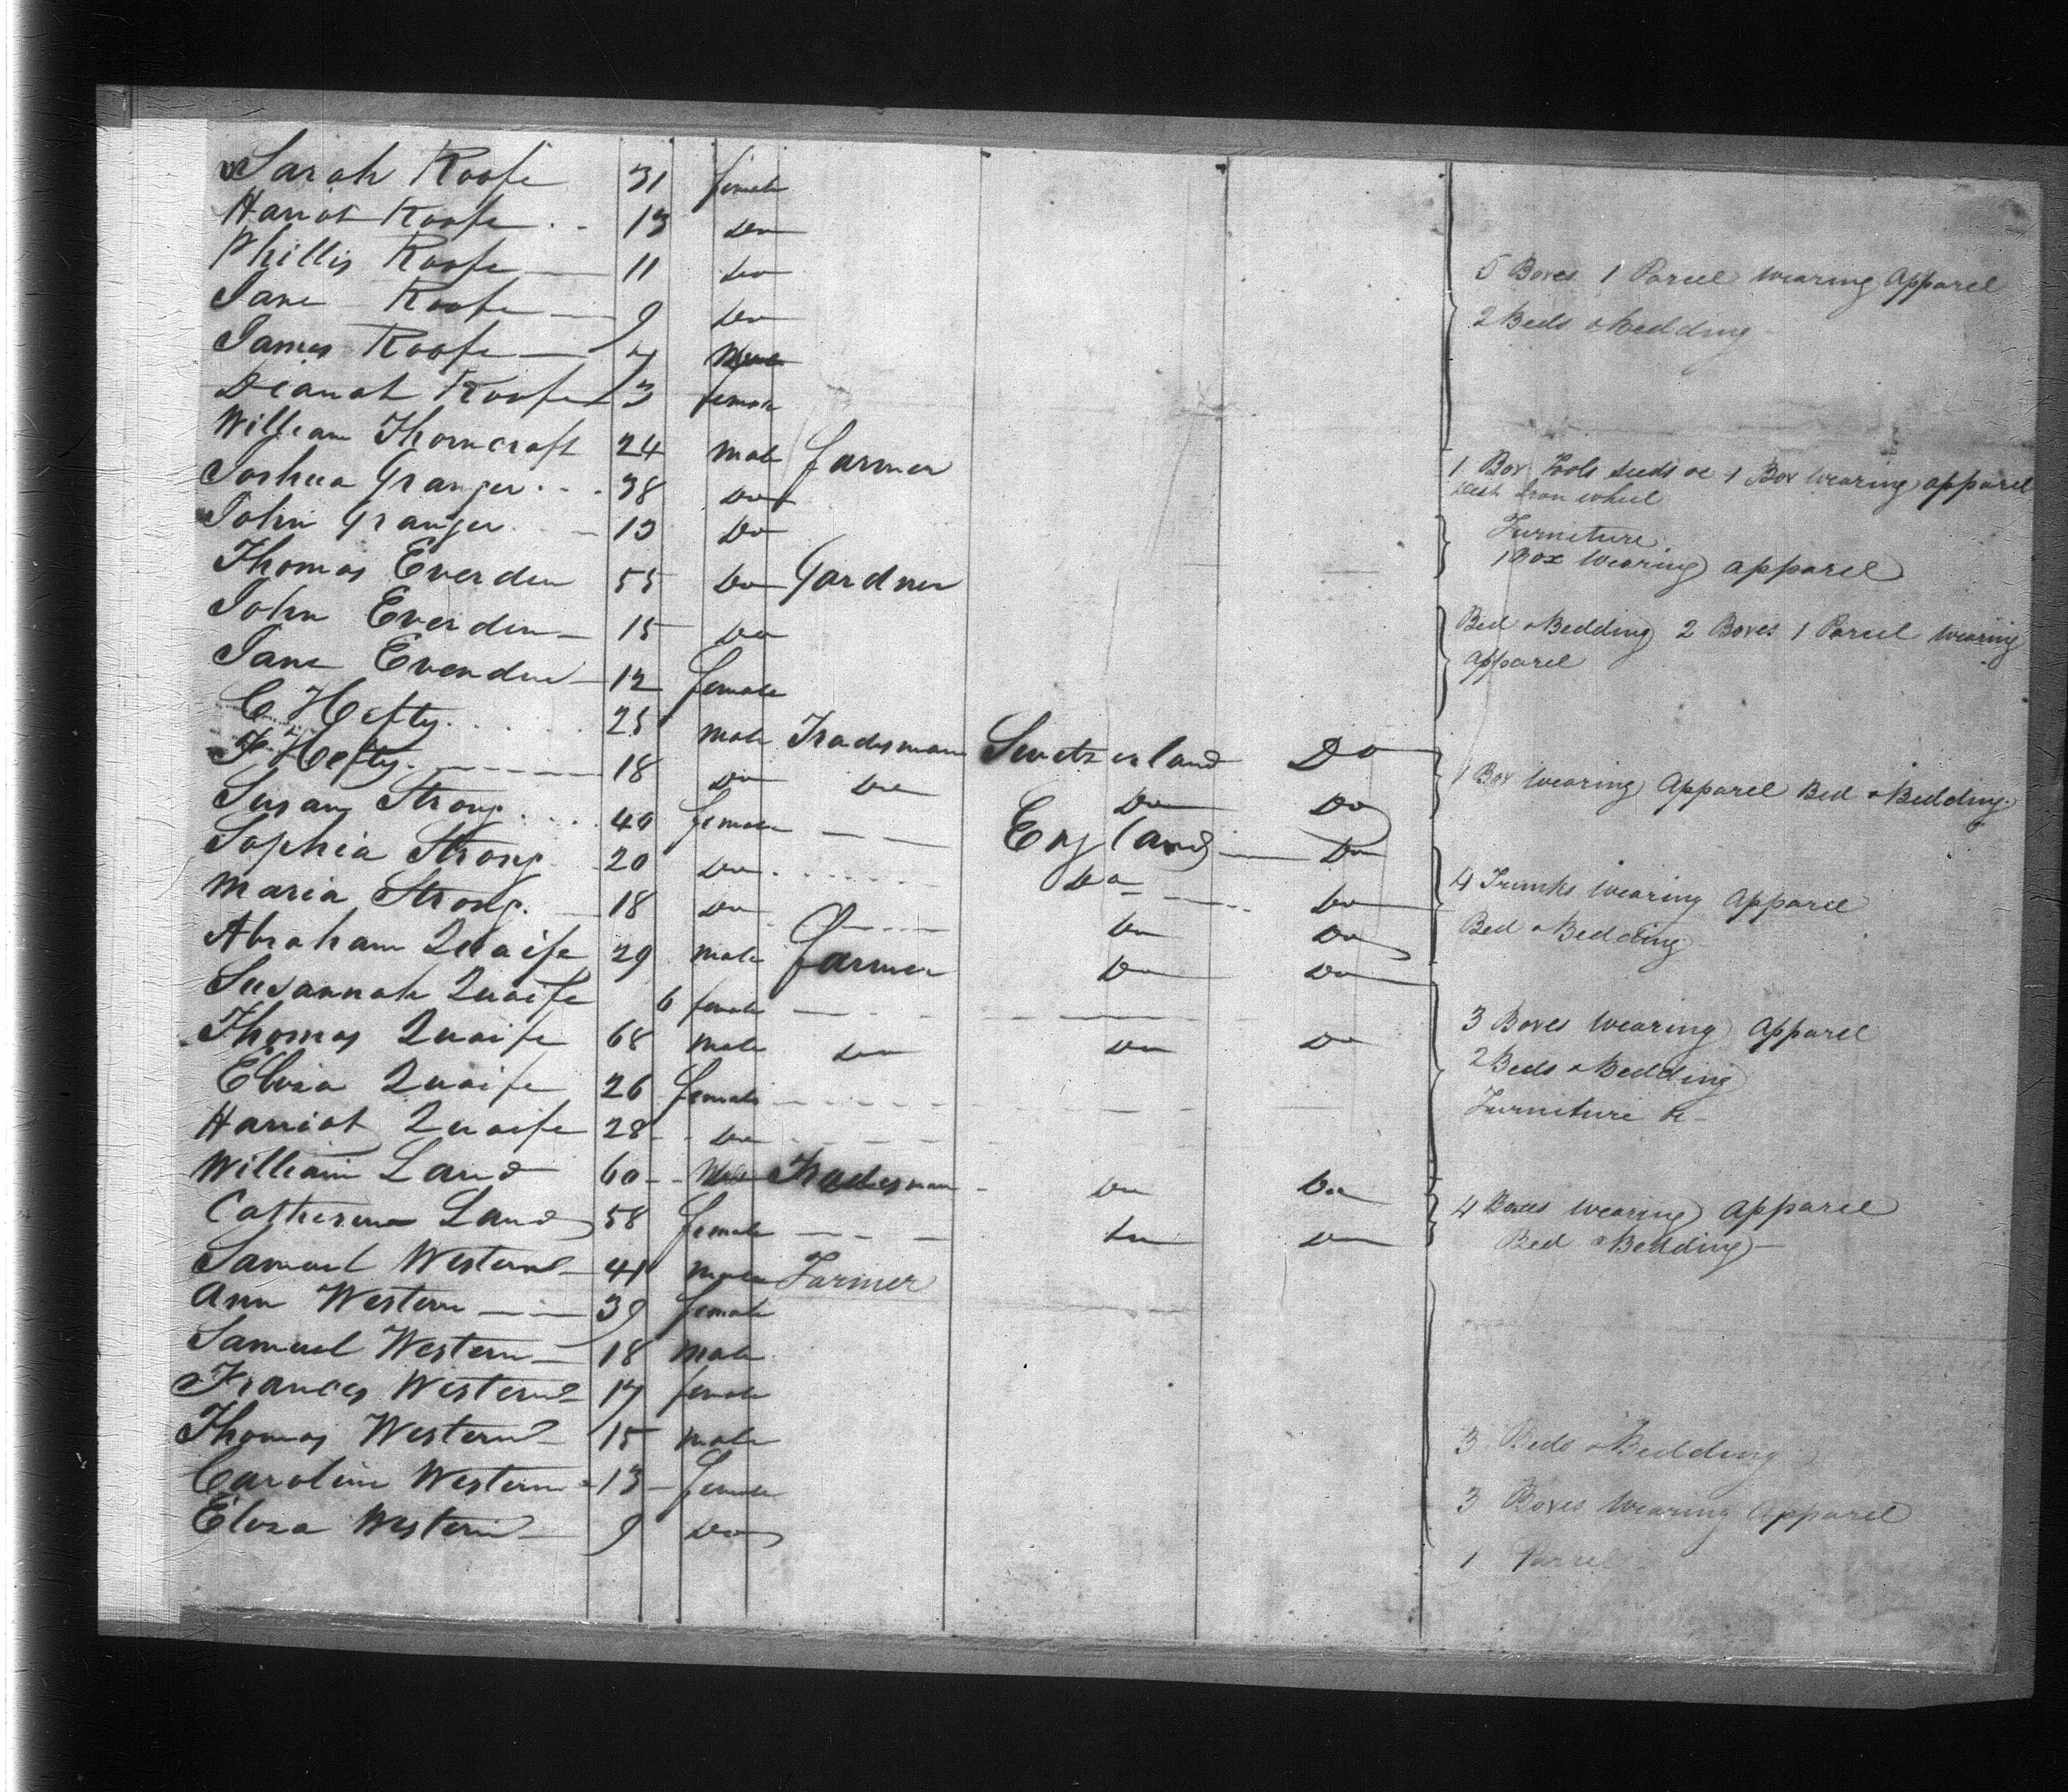 Sarah Roofe 31 female
Harriot Roofe 13 Do
Phillis Roofe 11 Do
5 Boxes 1 Parcel wearing Apparel
Jane Roofe 9 Do
2 Beds & Bedding
James Roofe 7 Male
Dianah Roofe 3 female
William Thorncraft 24 male farmer
1 Box Tools seeds &c 1 Box wearing apparel
Joshua Granger 38 Do
Iron wheel
John Granger 13 Do
Furniture
1 Box wearing apparel
Thomas Everden 55 Do Gardner
John Everden 15 Do
Bed & Bedding 2 Boxes 1 Parcel wearing
apparel
Jane Everden 12 female
C Hefty 25 male Tradesman Swetzerland Do
F Hefty 18 Do Do Do Do
1 Box wearing Apparel Bed & Bedding
Susang Strong 40 female England Do
Sophia Strong 20 Do Do Do
4 Trunks wearing Apparel
Maria Strong 18 Do Do Do
Bed & Bedding
Abraham Quaife 29 male farmer Do Do
Susannah Quaife 6 female
3 Boxes wearing Apparel
Thomas Quaife 68 male Do Do Do
2 Beds & Bedding
Eliza Quaife 26 female
Furniture &c
Harriot Quaife 28 Do
William Land 60 Male Tradesman Do Do
4 Boxes wearing apparel
Catherine Land 58 female Do Do
Bed & Bedding
Samuel Western 41 male Farmer
Ann Western 39 female
Samuel Western 18 male
Frances Western 17 female
Thomas Western 15 male
3 Beds & Bedding
Caroline Western 13 female
3 Boxes wearing apparel
Eliza Western 9 Do
1 Parcel